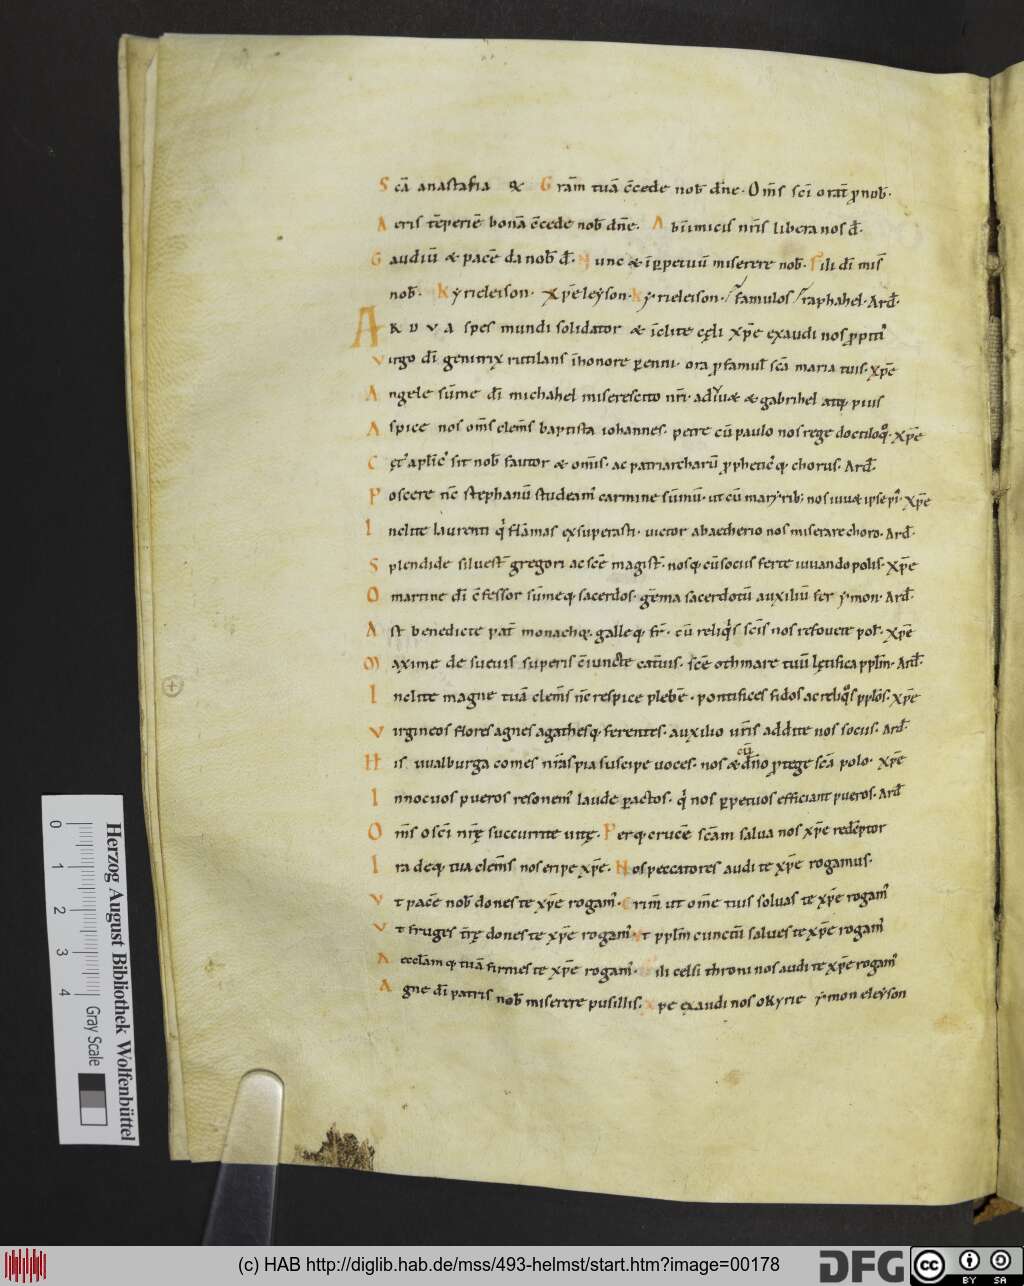 Scā anastasia & Grām tuā c̄cede nob̄ dn̄e. Om̄s sci orat̄ p nob̄.
Aeris tēperiē bonā c̄cede nob̄ dn̄e. Ab inimicis nr̄is libera nos d̄.
Gaudiū & pacē da nob̄ d̄. Nunc & īppetuū miserere nob̄. Fili dī mis̄
nob̄. Kyrieleison. Xpē leyson. Kyrieleison. famulos raphahel. Ard̄.
ARDVA spes mundi solidator & īclite cęli xpē exaudi nos ppitī
Virgo dī genitrix rutilans īhonore penni. ora p famul scā maria tuis. xpē
Angele sūme dī michahel miserescito nr̄i. adiuuæ & gabrihel atq, pius
Aspice nos om̄s elem̄s baptista iohannes. petre cū paulo nos rege doctiloq̄. xpē
Cęt apl̄ic sit nob̄ fautor & om̄is. ac patriarcharū pphetic q, chorus. Ard̄.
Poscere n̄c stephanū studeam̄ carmine sūmū. ut cū martyrib; nos iuuæ ipse pī. xpē
Inclite laurenti q̄ flāmas exsuperasti. uictor abaetherio nos miserare choro. Ard̄.
Splendide siluest̄ gregori ac scē magist̄. nos q, cū sociis ferte iuuando polis. xpē
O martine dī c̄fessor sūme q, sacerdos. gēma sacerdotū auxiliū fer ymon. Ard̄.
Ast benedicte pat̄ monach q, galle q, fr̄. cū reliq̄s scis nos refouete pol. xpē
Maxime de sueuis superis c̄iuncte cat̄uis. scē othmare tuū lętifica pplm̄. Ard̄.
Inclite magne tuā elem̄s n̄c respice plebē. pontifices fidos ac reliq̄s pplōs. xpē
Virgineos flores agnes agathes q, ferentes. auxilio ur̄is addite nos sociis. Ard̄
His uualburga comes nr̄as pia suscipe uoces. nos & cū dn̄o ptege scā polo. xpē
Innocuos pueros resonem̄ laude pactos. q̄ nos ppetuos efficiant pueros. Ard̄
Om̄s o sci nr̄ę succurrite uitę. Per q, crucē scām salua nos xpē redēptor
Ira deq, tua clem̄s nos eripe xpē. Nos peccatores audi te xpē rogamus.
Vt pacē nob̄ dones te xpē rogam̄. Crim̄ ut om̄e tuis soluas te xpē rogam̄
Vt fruges t̄rę dones te xpē rogam̄. Vt pplm̄ cunctū salues te xpē rogam̄
Aecclām q, tuā firmes te xpē rogam̄. Fili celsi throni nos audi te xpē rogam̄
Agne dī patris nob̄ miserere pusillis. Xpe exaudi nos o kyrie ymon eleyson
Herzog August Bibliothek Wolfenbüttel
0 1 2 3 4 Gray Scale
(c) HAB http://diglib.hab.de/mss/493-helmst/start.htm?image=00178
DFG
cc BY SA